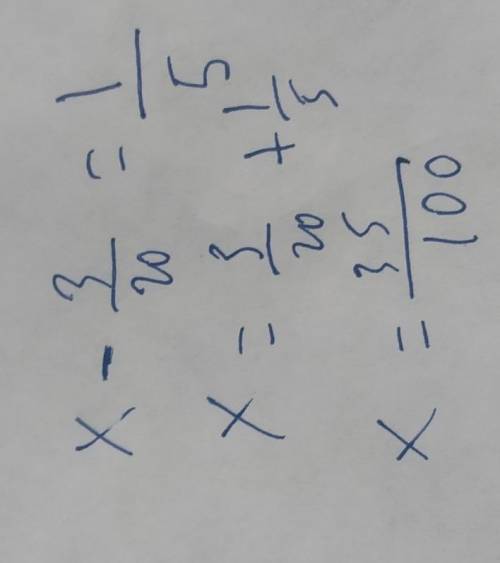 x - 3/20 = 1/5
x = 3/20 + 1/5
x = 35/100